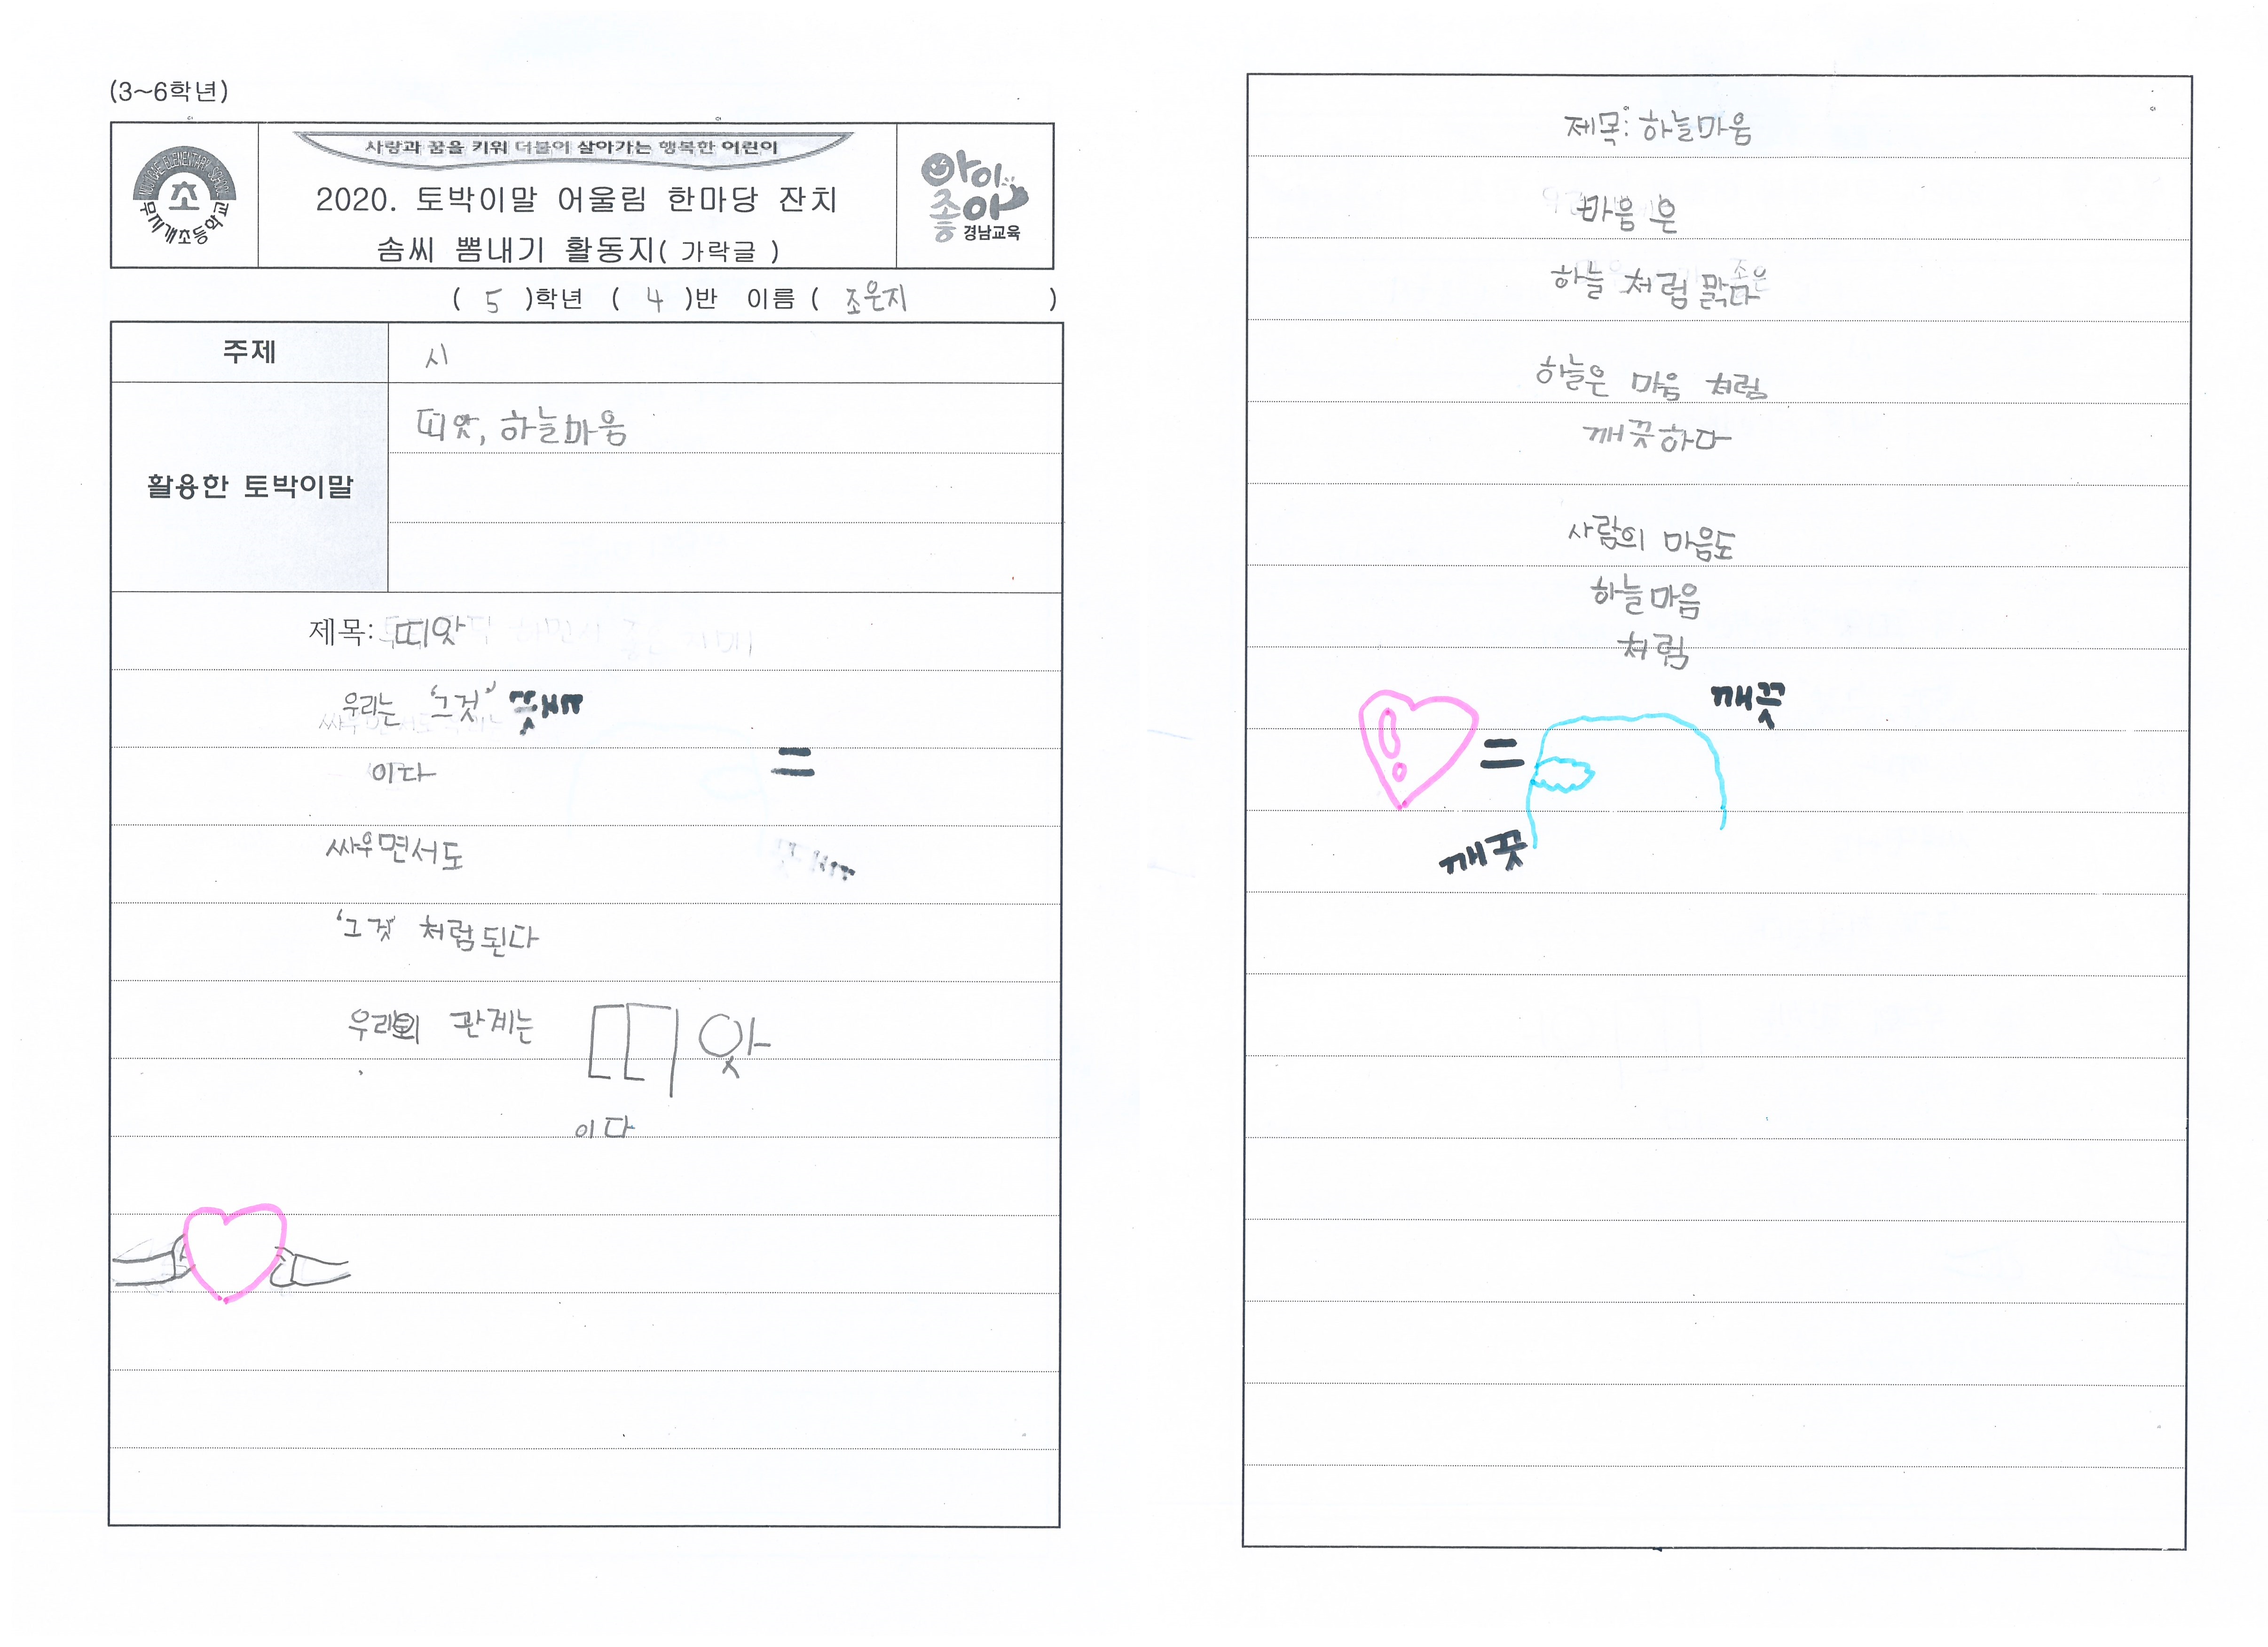 (3~6학년)
사랑과 꿈을 키워 더불어 살아가는 행복한 어린이
초
무지개초등학교
2020. 토박이말 어울림 한마당 잔치
솜씨 뽐내기 활동지( 가락글 )
아이좋아
경남교육
( 5 )학년 ( 4 )반 이름 ( 조은지 )
주제
시
활용한 토박이말
띠앗, 하늘마음
제목: 띠앗
우리는 '그것'
이다
=
싸우면서도
'그것' 처럼된다
우리의 관계는 띠앗
이다
제목: 하늘마음
마음은
하늘 처럼 맑다
하늘은 마음 처럼
깨끗하다
사람의 마음도
하늘마음
처럼
깨끗
=
깨끗